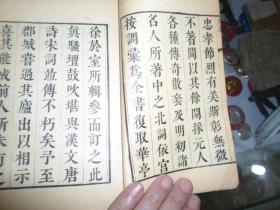 忠孝節烈有美斯彰無微
不著間以其餘閒採元人
各種傳奇散套及明初諸
名人所著中之北詞依宮
按調彙為全書復取華亭
徐於室所輯參而訂之此
真騷壇鼓吹堪與漢文唐
詩宋詞並傳不朽矣予至
郡城嘗過其廬出以相示
喜其能成前人所未有